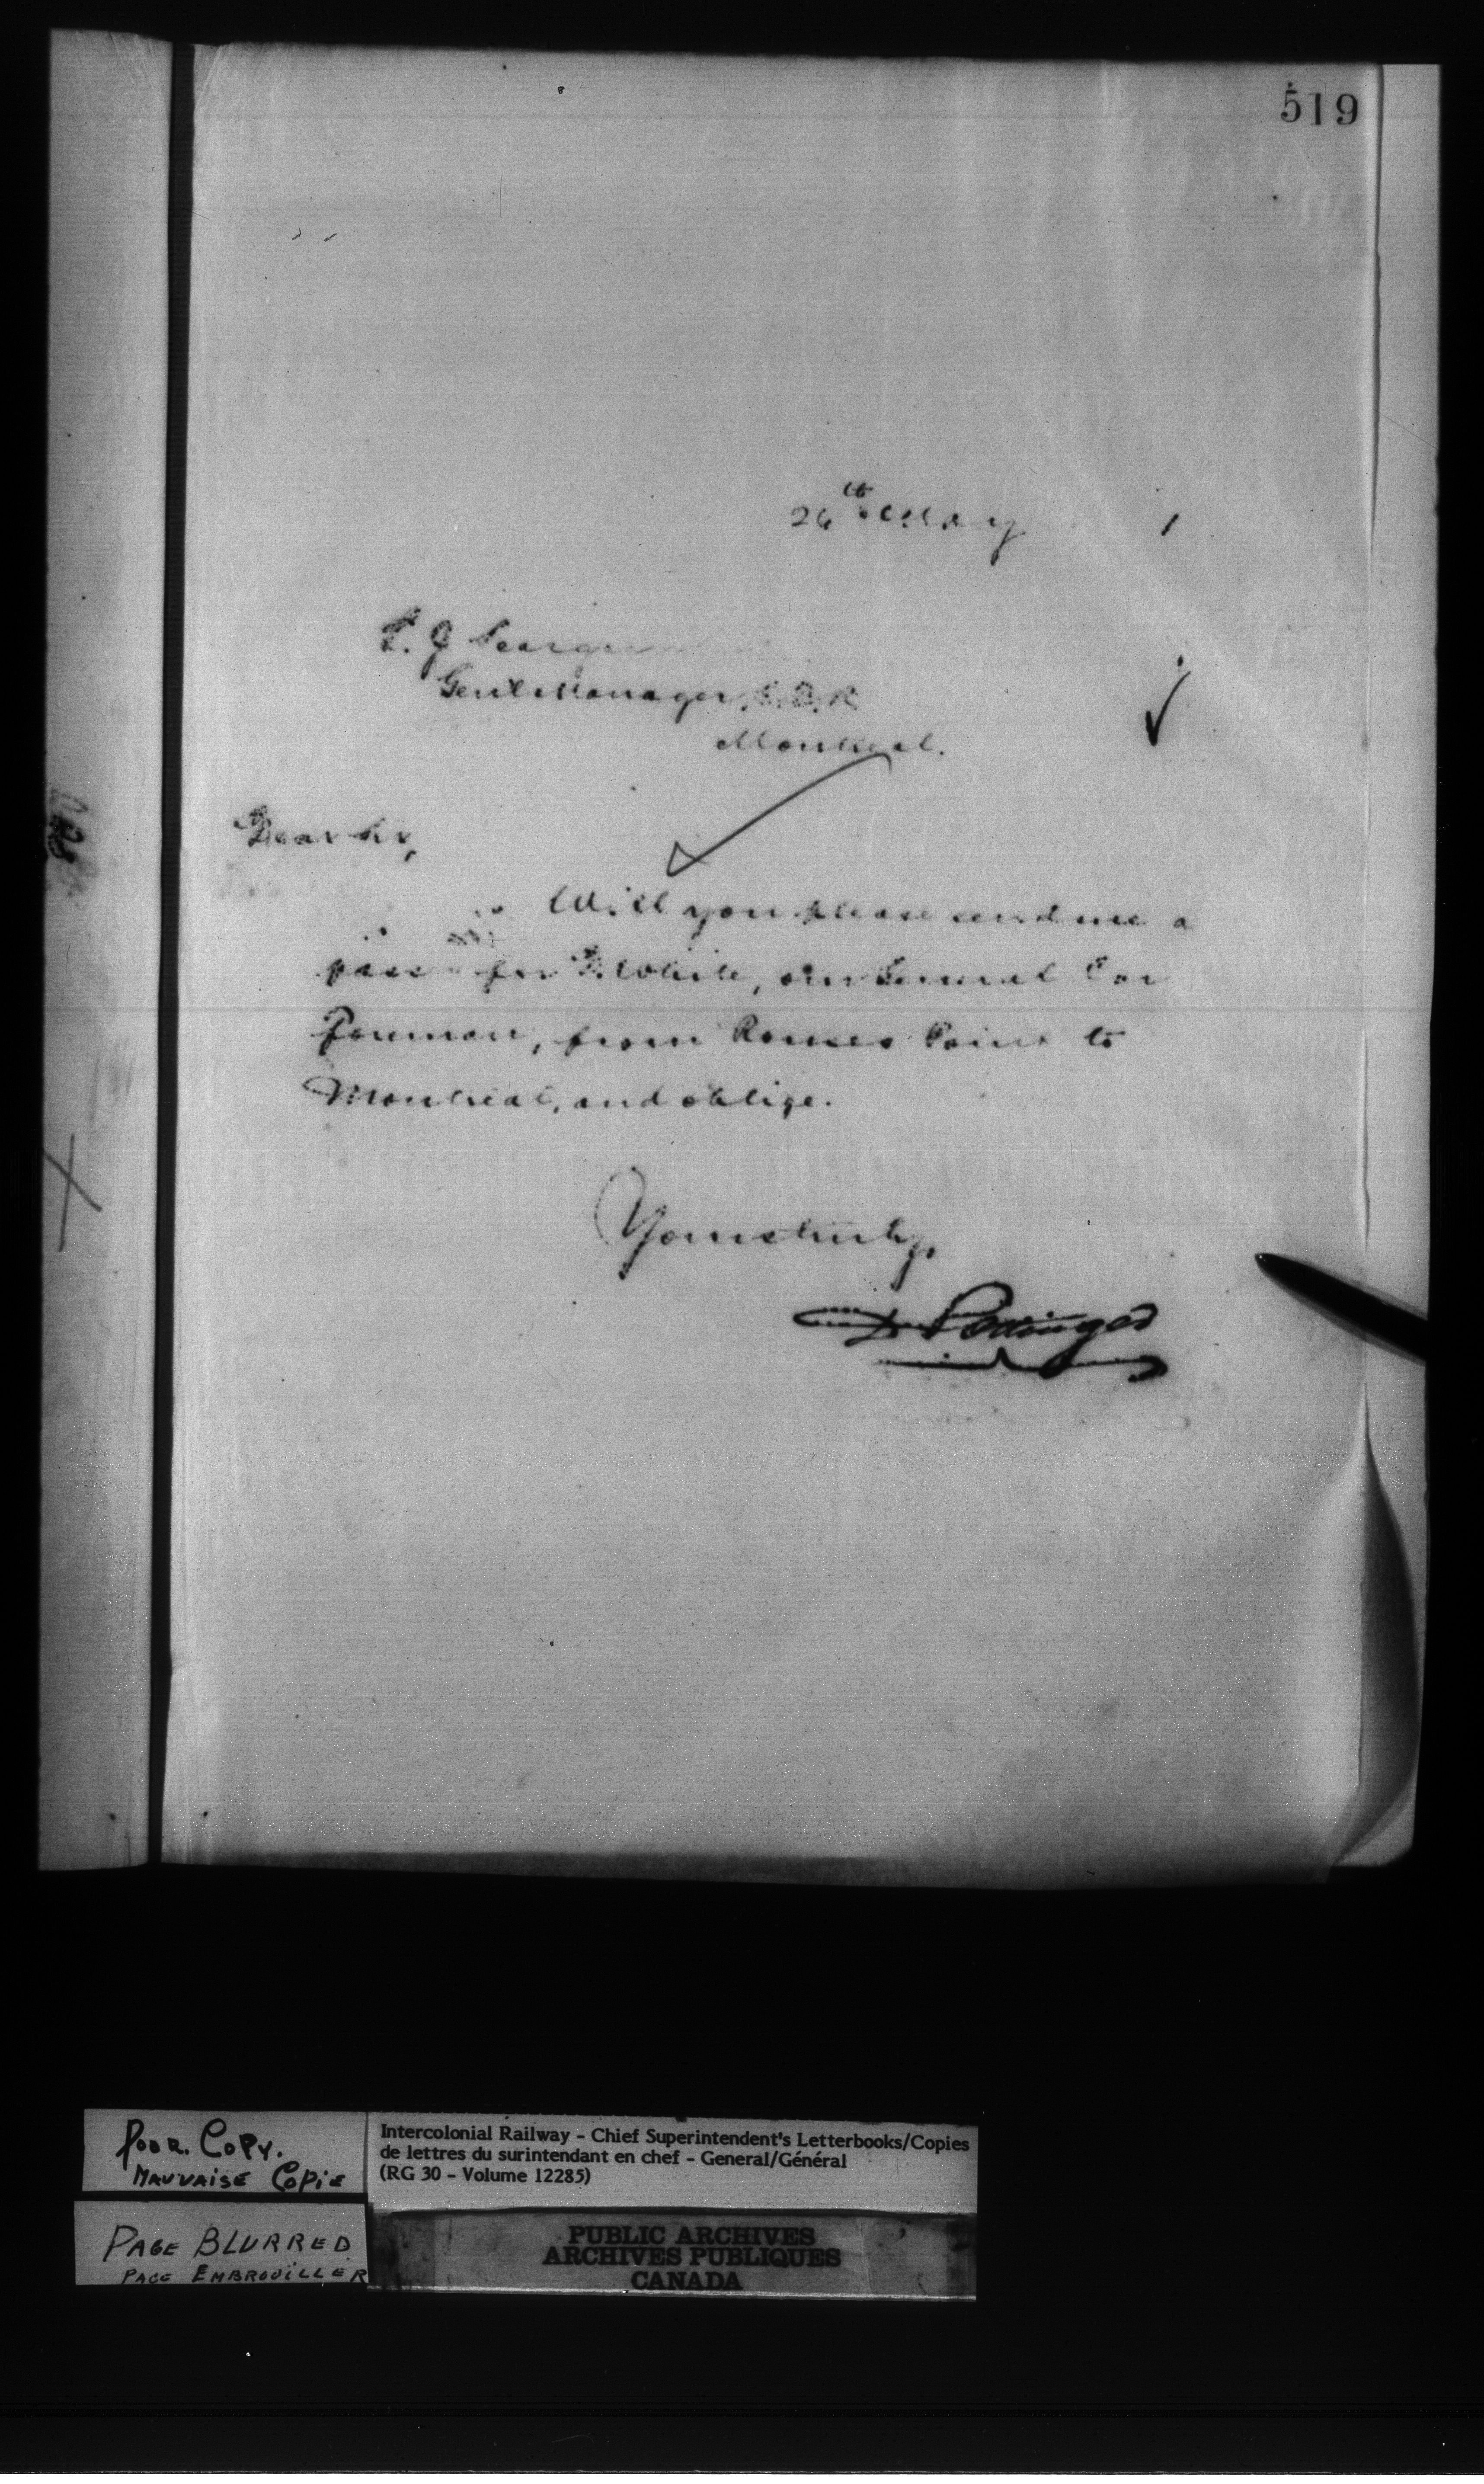 519
26th May 1
L. J. Seargeant
Genl Manager, G.T.R
Montreal.
Dear Sir,
Will you please send me a
pass for Mr White, our General Car
Foreman, from Rouses Point to
Montreal, and oblige.
Yours truly,
D Pottinger
POOR. COPY.
MAUVAISE COPIE
PAGE BLURRED
PAGE EMBROUILLER
Intercolonial Railway - Chief Superintendent's Letterbooks/Copies
de lettres du surintendant en chef - General/Général
(RG 30 - Volume 12285)
PUBLIC ARCHIVES
ARCHIVES PUBLIQUES
CANADA